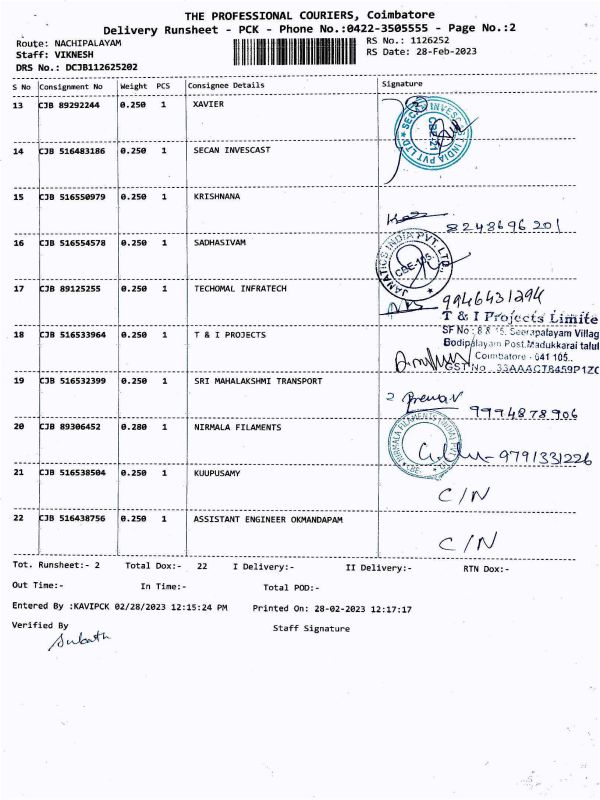 THE PROFESSIONAL COURIERS, Coimbatore
Delivery Runsheet - PCK - Phone No.:0422-3505555 - Page No.:2
Route: NACHIPALAYAM
Staff: VIKNESH
DRS No.: DCJB112625202
RS No.: 1126252
RS Date: 28-Feb-2023
S No Consignment No Weight PCS Consignee Details Signature
13 CJB 89292244 0.250 1 XAVIER
14 CJB 516483186 0.250 1 SECAN INVESCAST
SECAN INVESCAST INDIA PVT LTD
CBE-21
15 CJB 516550979 0.250 1 KRISHNANA
8248696201
16 CJB 516554578 0.250 1 SADHASIVAM
JANATICS INDIA PVT. LTD.,
CBE-105.
17 CJB 89125255 0.250 1 TECHOMAL INFRATECH
9946431294
18 CJB 516533964 0.250 1 T & I PROJECTS
T & I Projects Limite
SF No : 8 8 15, Seerapalayam Villag
Bodipalayam Post,Madukkarai talul
Coimbatore - 641 105..
GST No . 33AAACT8459P1ZC
19 CJB 516532399 0.250 1 SRI MAHALAKSHMI TRANSPORT
9994878906
20 CJB 89306452 0.280 1 NIRMALA FILAMENTS
NIRMALA FILAMENTS (INDIA) PVT
CBE
9791331226
21 CJB 516538504 0.250 1 KUUPUSAMY
C/N
22 CJB 516438756 0.250 1 ASSISTANT ENGINEER OKMANDAPAM
C/N
Tot. Runsheet:- 2 Total Dox:- 22 I Delivery:- II Delivery:- RTN Dox:-
Out Time:- In Time:- Total POD:-
Entered By :KAVIPCK 02/28/2023 12:15:24 PM Printed On: 28-02-2023 12:17:17
Verified By Staff Signature